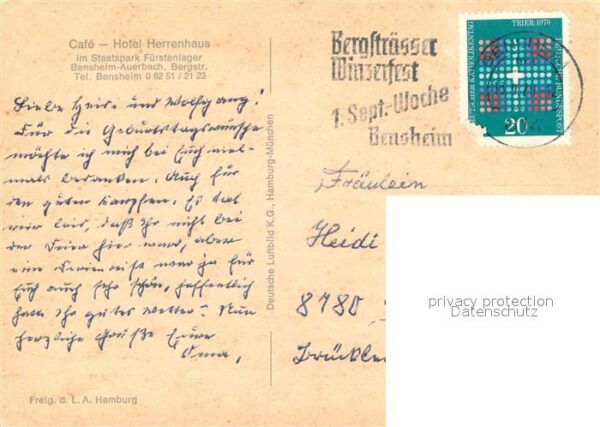 Café – Hotel Herrenhaus
im Staatspark Fürstenlager
Bensheim-Auerbach, Bergstr.
Tel. Bensheim 0 62 51 / 21 23
Liebe Heidi und Wolfgang!
Für die Geburtstagswünsche
möchte ich mich bei Euch viel-
mals bedanken. Auch für
den guten Es tat
mir leid, daß Ihr nicht bei
der Feier hier ward, aber
eine Ferienreise war ja für
Euch auch sehr schön, hoffentlich
hatte Ihr gutes Wetter? Nun
herzliche Grüße Eure
Oma,
Freig. d. L. A. Hamburg
Deutsche Luftbild K.G., Hamburg-München
Bergsträsser
Winzerfest
1. Sept.-Woche
Bensheim
DEUTSCHER KATHOLIKENTAG
TRIER 1970
DEUTSCHE BUNDESPOST
20
Fräulein
Heidi
8780
privacy protection
Datenschutz